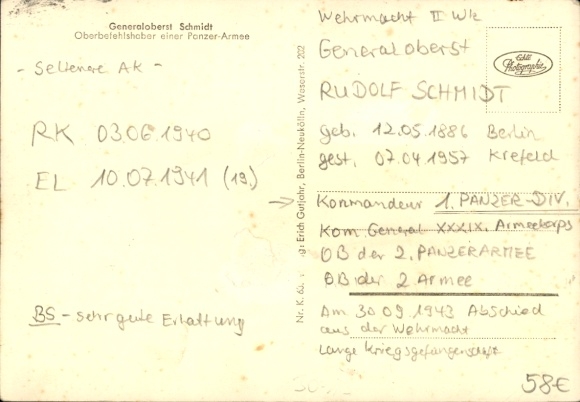 Generaloberst Schmidt
Oberbefehlshaber einer Panzer-Armee
- Seltenere AK -
RK 03.06.1940
EL 10.07.1941 (19.)
BS - sehr gute Erhaltung
Erich Gutjahr, Berlin-Neukölln, Weserstr. 202
Wehrmacht II Wk
Generaloberst
RUDOLF SCHMIDT
Echte Photographie
geb. 12.05.1886 Berlin
gest. 07.04.1957 Krefeld
→ Kommandeur 1. PANZER-DIV.
Kom General XXXIX. Armeekorps
OB der 2. PANZERARMEE
OB der 2 Armee
Am 30 09 1943 Abschied
aus der Wehrmacht
lange Kriegsgefangenschaft
58€